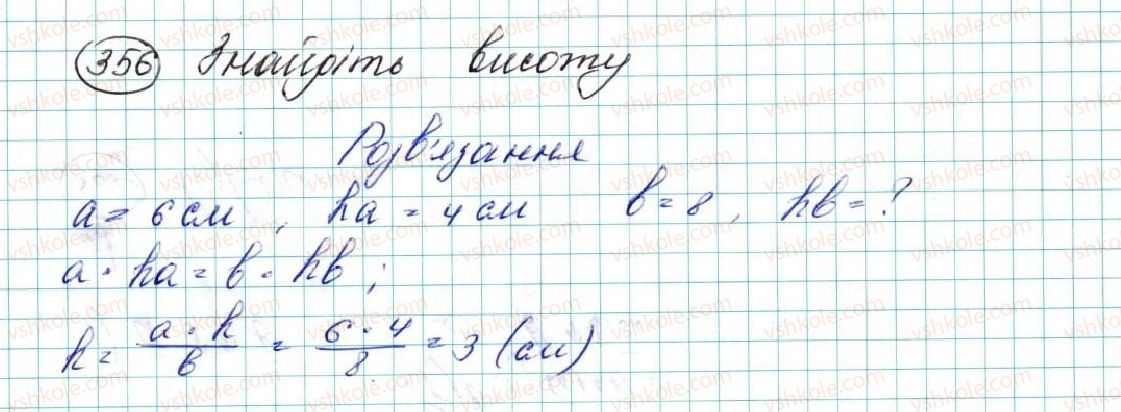 356 Знайдіть висоту
Розв'язання
a = 6 см, ha = 4 см b = 8, hb = ?
a · ha = b · hb;
h = a · h / b = 6 · 4 / 8 = 3 (см)
vshkole.com